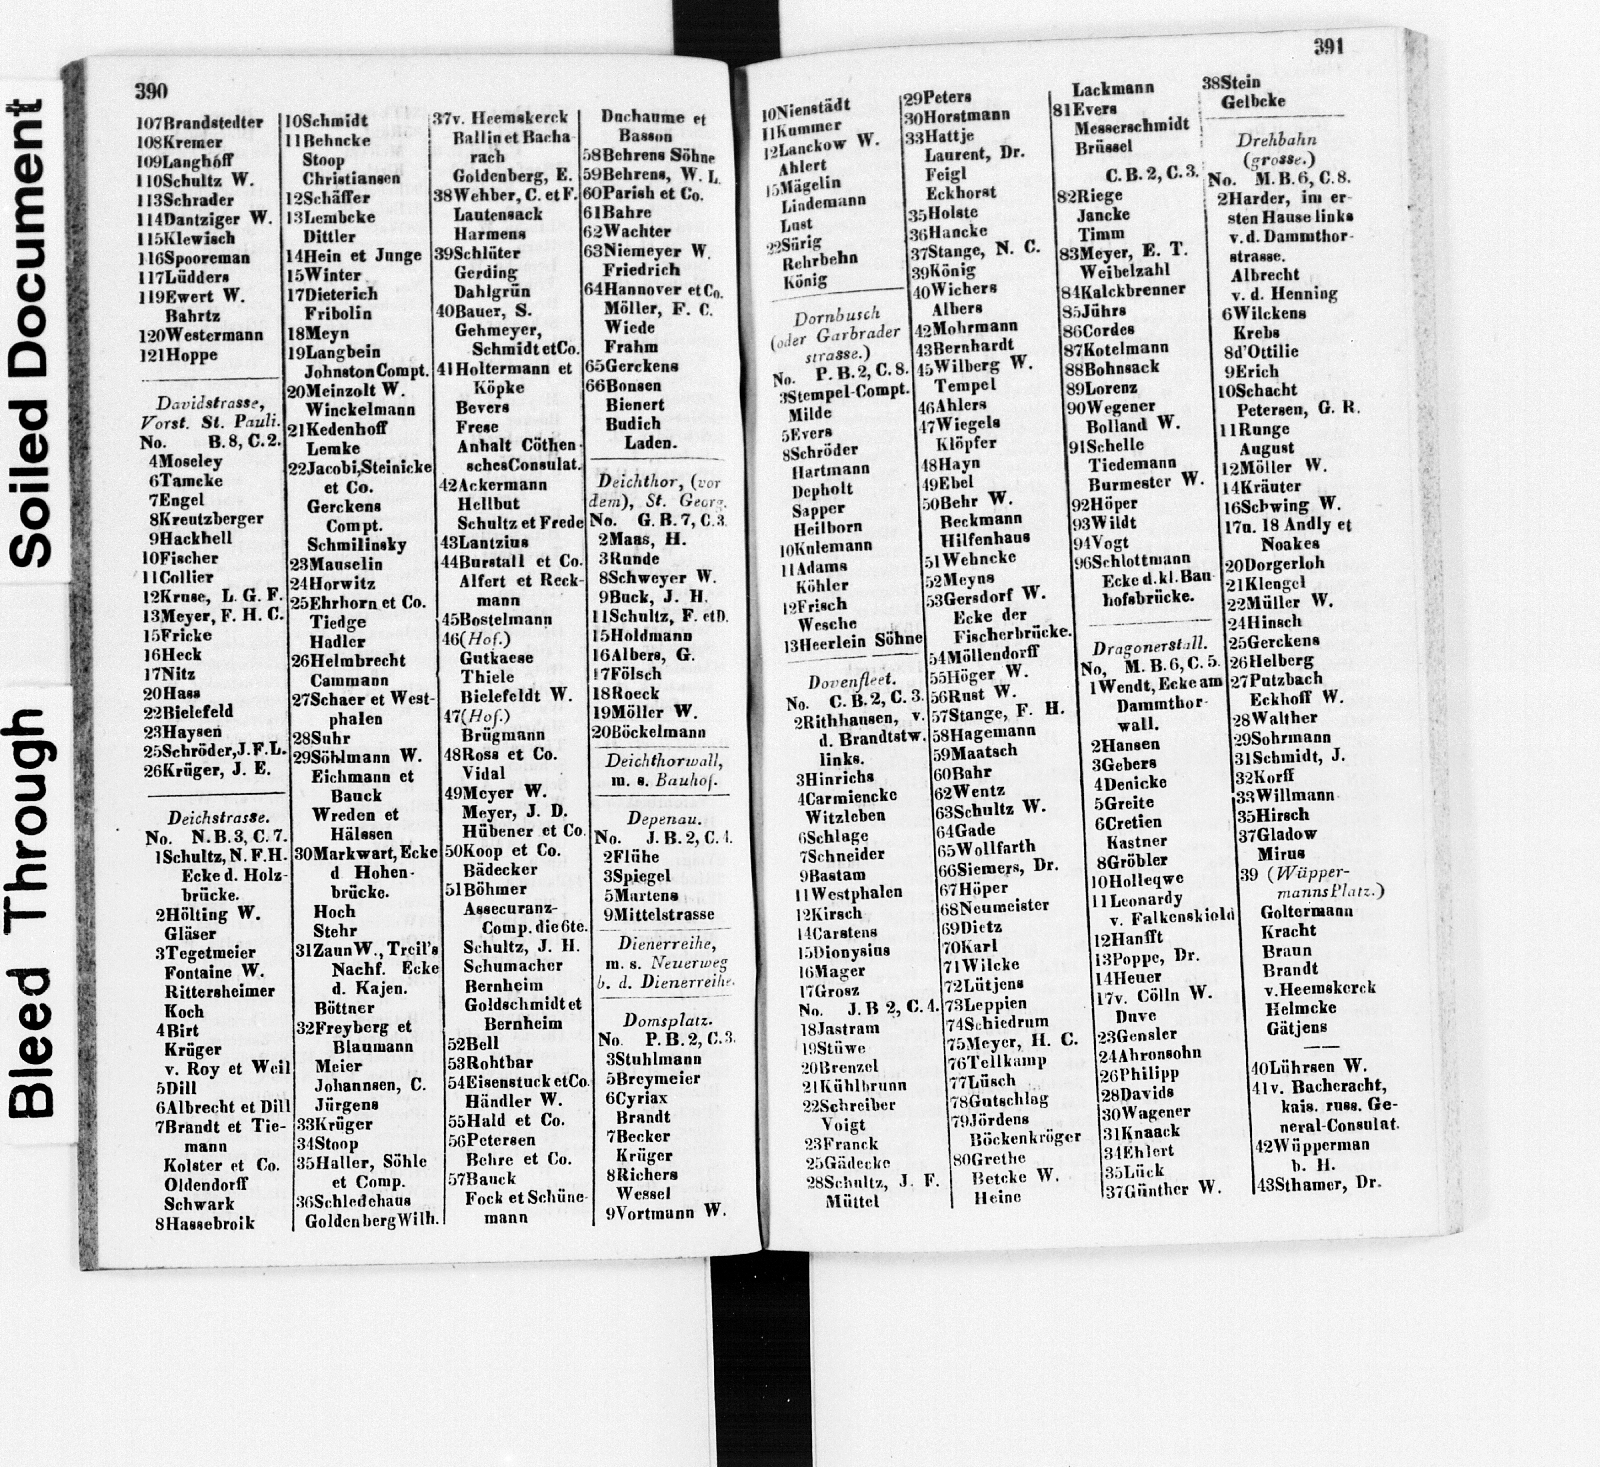 Soiled Document
Bleed Through
390
107Brandstedter
108Kremer
109Langhoff
110Schultz W.
113Schrader
114Dantziger W.
115Klewisch
116Spooreman
117Lüdders
119Ewert W.
Bahrtz
120Westermann
121Hoppe
Davidstrasse,
Vorst. St. Pauli.
No. B.8, C.2.
4Moseley
6Tamcke
7Engel
8Kreutzberger
9Hackhell
10Fischer
11Collier
12Kruse, L. G. F.
13Meyer, F. H. C.
15Fricke
16Heck
17Nitz
20Hass
22Bielefeld
23Haysen
25Schröder,J.F.L.
26Krüger, J. E.
Deichstrasse.
No. N.B.3, C.7.
1Schultz, N.F.H.
Ecke d. Holz-
brücke.
2Hölting W.
Gläser
3Tegetmeier
Fontaine W.
Rittersheimer
Koch
4Birt
Krüger
v. Roy et Weil
5Dill
6Albrecht et Dill
7Brandt et Tie-
mann
Kolster et Co.
Oldendorff
Schwark
8Hassebroik
10Schmidt
11Behncke
Stoop
Christiansen
12Schäffer
13Lembcke
Dittler
14Hein et Junge
15Winter
17Dieterich
Fribolin
18Meyn
19Langbein
Johnston Compt.
20Meinzolt W.
Winckelmann
21Kedenhoff
Lemke
22Jacobi,Steinicke
et Co.
Gerckens
Compt.
Schmilinsky
23Mauselin
24Horwitz
25Ehrhorn et Co.
Tiedge
Hadler
26Helmbrecht
Cammann
27Schaer et West-
phalen
28Suhr
29Söhlmann W.
Eichmann et
Bauck
Wreden et
Hälssen
30Markwart, Ecke
d Hohen-
brücke.
Hoch
Stehr
31Zaun W., Treil's
Nachf. Ecke
d. Kajen.
Böttner
32Freyberg et
Blaumann
Meier
Johannsen, C.
Jürgens
33Krüger
34Stoop
35Haller, Söhle
et Comp.
36Schledehaus
Goldenberg Wilh.
37v. Heemskerck
Ballin et Bacha-
rach
Goldenberg, E.
38Wehber, C. et F.
Lautensack
Harmens
39Schlüter
Gerding
Dahlgrün
40Bauer, S.
Gehmeyer,
Schmidt et Co.
41Holtermann et
Köpke
Bevers
Frese
Anhalt Cöthen-
sches Consulat.
42Ackermann
Hellbut
Schultz et Frede
43Lantzius
44Burstall et Co.
Alfert et Reck-
mann
45Bostelmann
46(Hof.)
Gutkaese
Thiele
Bielefeldt W.
47(Hof.)
Brügmann
48Ross et Co.
Vidal
49Meyer W.
Meyer, J. D.
Hübener et Co.
50Koop et Co.
Bädecker
51Böhmer
Assecuranz-
Comp. die 6te.
Schultz, J. H.
Schumacher
Bernheim
Goldschmidt et
Bernheim
52Bell
53Rohtbar
54Eisenstuck et Co.
Händler W.
55Hald et Co.
56Petersen
Behre et Co.
57Bauck
Fock et Schüne-
mann
Duchaume et
Basson
58Behrens Söhne
59Behrens, W. L.
60Parish et Co.
61Bahre
62Wachter
63Niemeyer W.
Friedrich
64Hannover et Co.
Möller, F. C.
Wiede
Frahm
65Gerckens
66Bonsen
Bienert
Budich
Laden.
Deichthor, (vor
dem), St. Georg.
No. G.B.7, C.3.
2Maas, H.
3Runde
8Schweyer W.
9Buck, J. H.
11Schultz, F. et D.
15Holdmann
16Albers, G.
17Fölsch
18Roeck
19Möller W.
20Böckelmann
Deichthorwall,
m. s. Bauhof.
Depenau.
No. J.B.2, C.4.
2Flühe
3Spiegel
5Martens
9Mittelstrasse
Dienerreihe,
m. s. Neuerweg
b. d. Dienerreihe.
Domsplatz.
No. P.B.2, C.3.
3Stuhlmann
5Breymeier
6Cyriax
Brandt
7Becker
Krüger
8Richers
Wessel
9Vortmann W.
391
10Nienstädt
11Kummer
12Lanckow W.
Ahlert
15Mägelin
Lindemann
Lust
22Sürig
Rehrbehn
König
Dornbusch
(oder Garbrader
strasse.)
No. P.B.2, C.8.
3Stempel-Compt.
Milde
5Evers
8Schröder
Hartmann
Depholt
Sapper
Heilborn
10Kulemann
11Adams
Köhler
12Frisch
Wesche
13Heerlein Söhne
Dovenfleet.
No. C.B.2, C.3.
2Rithhausen, v.
d. Brandtstw.
links.
3Hinrichs
4Carmiencke
Witzleben
6Schlage
7Schneider
9Bastam
11Westphalen
12Kirsch
14Carstens
15Dionysius
16Mager
17Grosz
No. J.B 2, C.4.
18Jastram
19Stüwe
20Brenzel
21Kühlbrunn
22Schreiber
Voigt
23Franck
25Gädecke
28Schultz, J. F.
Müttel
29Peters
30Horstmann
33Hattje
Laurent, Dr.
Feigl
Eckhorst
35Holste
36Hancke
37Stange, N. C.
39König
40Wichers
Albers
42Mohrmann
43Bernhardt
45Wilberg W.
Tempel
46Ahlers
47Wiegels
Klöpfer
48Hayn
49Ebel
50Behr W.
Reckmann
Hilfenhaus
51Wehncke
52Meyns
53Gersdorf W.
Ecke der
Fischerbrücke.
54Möllendorff
55Höger W.
56Rust W.
57Stange, F. H.
58Hagemann
59Maatsch
60Bahr
62Wentz
63Schultz W.
64Gade
65Wollfarth
66Siemers, Dr.
67Höper
68Neumeister
69Dietz
70Karl
71Wilcke
72Lütjens
73Leppien
74Schiedrum
75Meyer, H. C.
76Tellkamp
77Lüsch
78Gutschlag
79Jördens
Böckenkröger
80Grethe
Betcke W.
Heine
Lackmann
81Evers
Messerschmidt
Brüssel
C.B.2, C.3.
82Riege
Jancke
Timm
83Meyer, E. T.
Weibelzahl
84Kalckbrenner
85Jührs
86Cordes
87Kotelmann
88Bohnsack
89Lorenz
90Wegener
Bolland W.
91Schelle
Tiedemann
Burmester W.
92Höper
93Wildt
94Vogt
96Schlottmann
Ecke d. kl. Bau-
hofsbrücke.
Dragonerstall.
No, M.B.6, C.5.
1Wendt, Ecke am
Dammthor-
wall.
2Hansen
3Gebers
4Denicke
5Greite
6Cretien
Kastner
8Gröbler
10Holleqwe
11Leonardy
v. Falkenskiold
12Hanfft
13Poppe, Dr.
14Heuer
17v. Cölln W.
Duve
23Gensler
24Ahronsohn
26Philipp
28Davids
30Wagener
31Knaack
34Ehlert
35Lück
37Günther W.
38Stein
Gelbcke
Drehbahn
(grosse.)
No. M.B.6, C.8.
2Harder, im er-
sten Hause links
v. d. Dammthor-
strasse.
Albrecht
v. d. Henning
6Wilckens
Krebs
8d'Ottilie
9Erich
10Schacht
Petersen, G. R.
11Runge
August
12Möller W.
14Kräuter
16Schwing W.
17u. 18 Andly et
Noakes
20Dorgerloh
21Klengel
22Müller W.
24Hinsch
25Gerckens
26Helberg
27Putzbach
Eckhoff W.
28Walther
29Sohrmann
31Schmidt, J.
32Korff
33Willmann
35Hirsch
37Gladow
Mirus
39 (Wüpper-
manns Platz.)
Goltermann
Kracht
Braun
Brandt
v. Heemskerck
Helmcke
Gätjens
40Lührsen W.
41v. Bacheracht,
kais. russ. Ge-
neral-Consulat.
42Wüpperman
b. H.
43Sthamer, Dr.